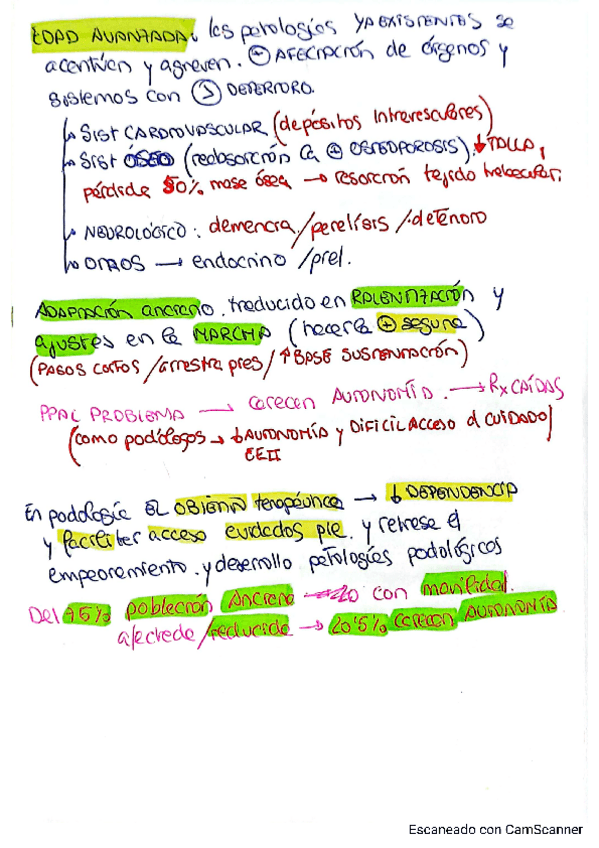 EDAD AVANZADA: les patologías YA EXISTENTES se
acentúen y agraven. ⊕ AFECTACIÓN de órganos y
sistemas con DETERIORO.
↳ Sist CARDIOVASCULAR (depósitos intravasculares)
↳ Sist ÓSEO (reabsorción Ca ⊕ OSTEOPOROSIS). ↓TALLA,
pérdida 50% masa ósea → resorción tejido trabecular.
↳ NEUROLÓGICO: demencia/parálisis/deterioro
↳ OTROS → endocrino/piel.
ADAPTACIÓN anciano. traducido en RALENTIZACIÓN y
ajustes en la MARCHA (hacerla ⊕ segura)
(PASOS CORTOS/arrastra pies/↑BASE SUSTENTACIÓN)
PPAL PROBLEMA → carecen AUTONOMÍA. → Rx CAÍDAS
(como podólogos → ↓AUTONOMÍA y DIFICIL Acceso al CUIDADO)
EEII
En podología EL OBJETIVO terapéutico → ↓ DEPENDENCIA
y facilitar acceso cuidados pie. y retrase el
empeoramiento. y desarrollo patologías podológicas
Del 75% población Anciana 20 con movilidad.
afectada/reducida → 20'5% carecen AUTONOMÍA
Escaneado con CamScanner